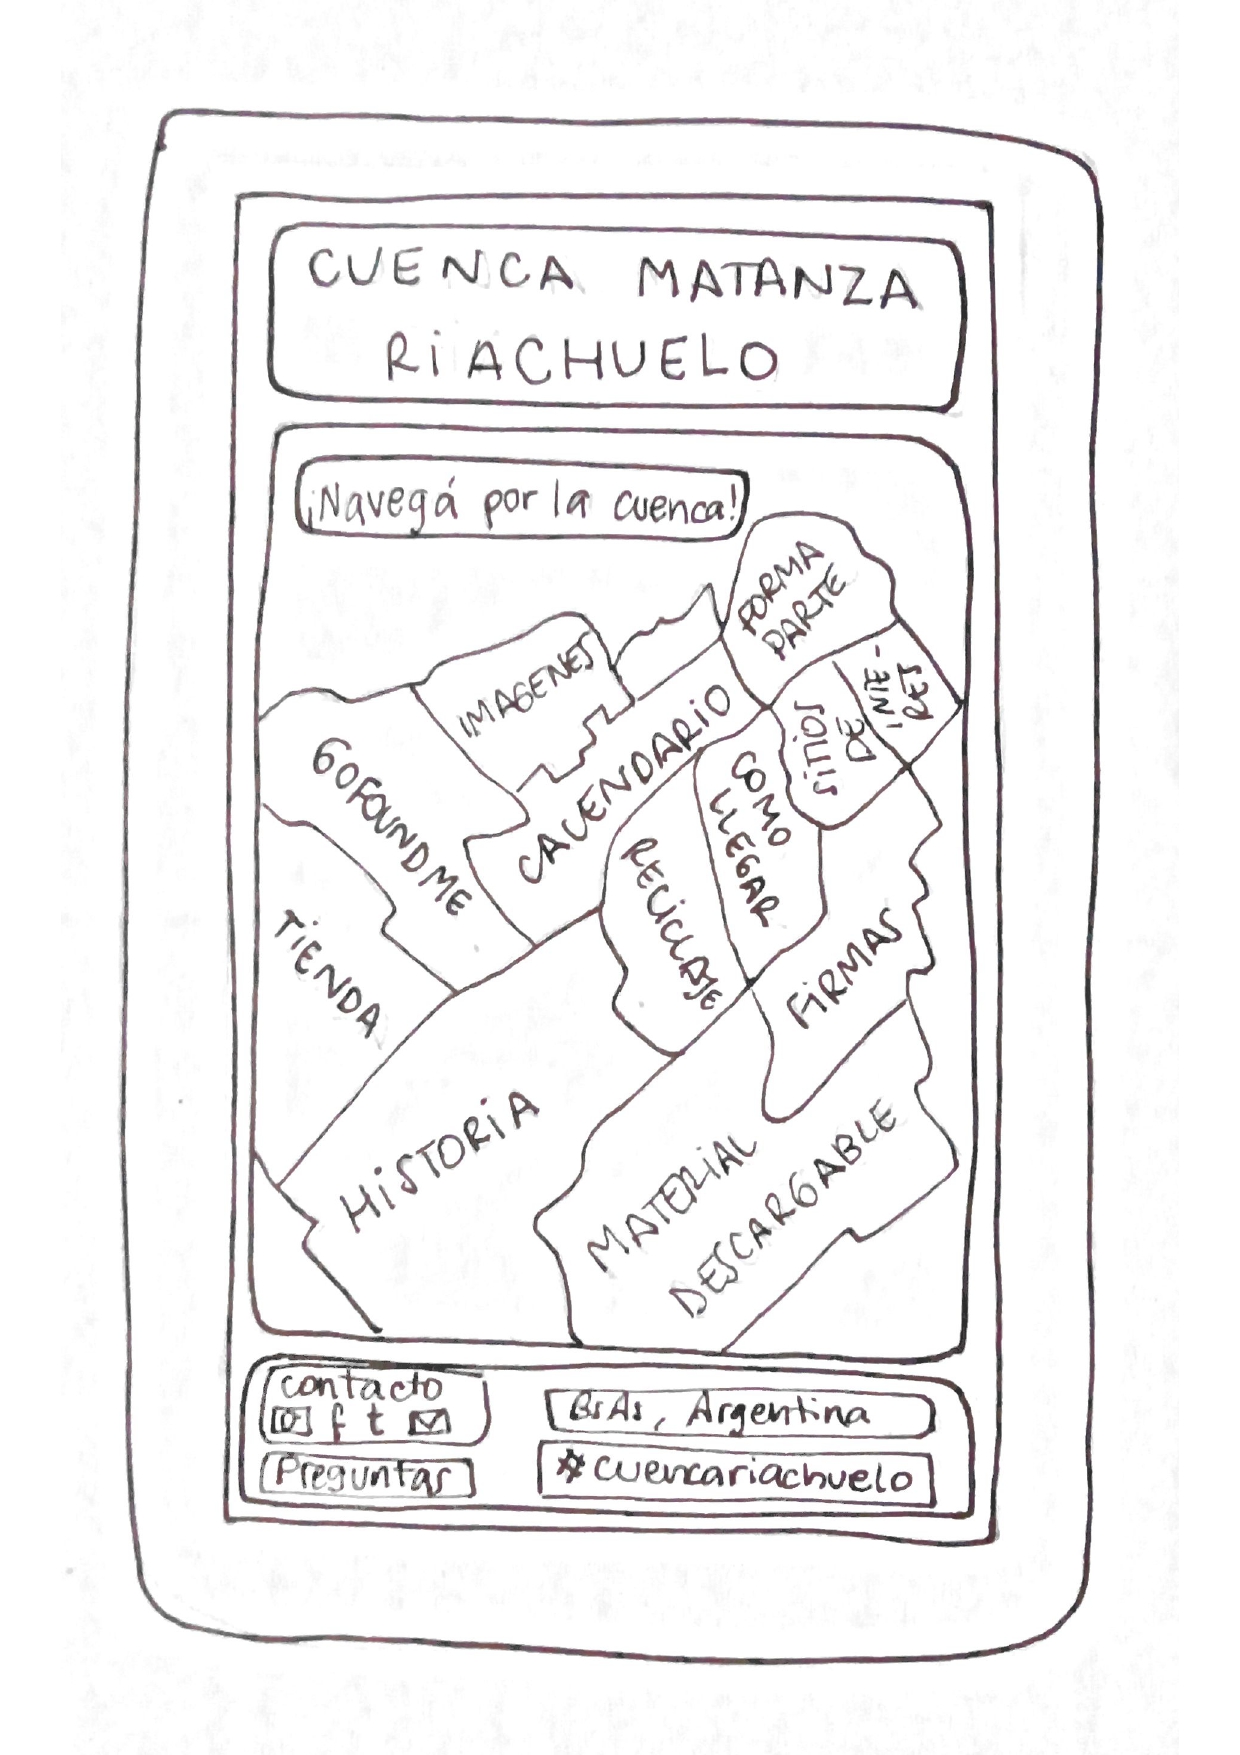 CUENCA MATANZA
RiACHUELO
¡Navegá por la cuenca!
FORMA
PARTE
IMAGENES
SITIOS
DE
INTE-
RES
CALENDARIO
GOFOUNDME
COMO
LLEGAR
RECICLAJE
TiENDA
FiRMAS
HiSTORiA
MATERIAL
DESCARGABLE
contacto
f t
BsAs, Argentina
Preguntas
#cuencariachuelo